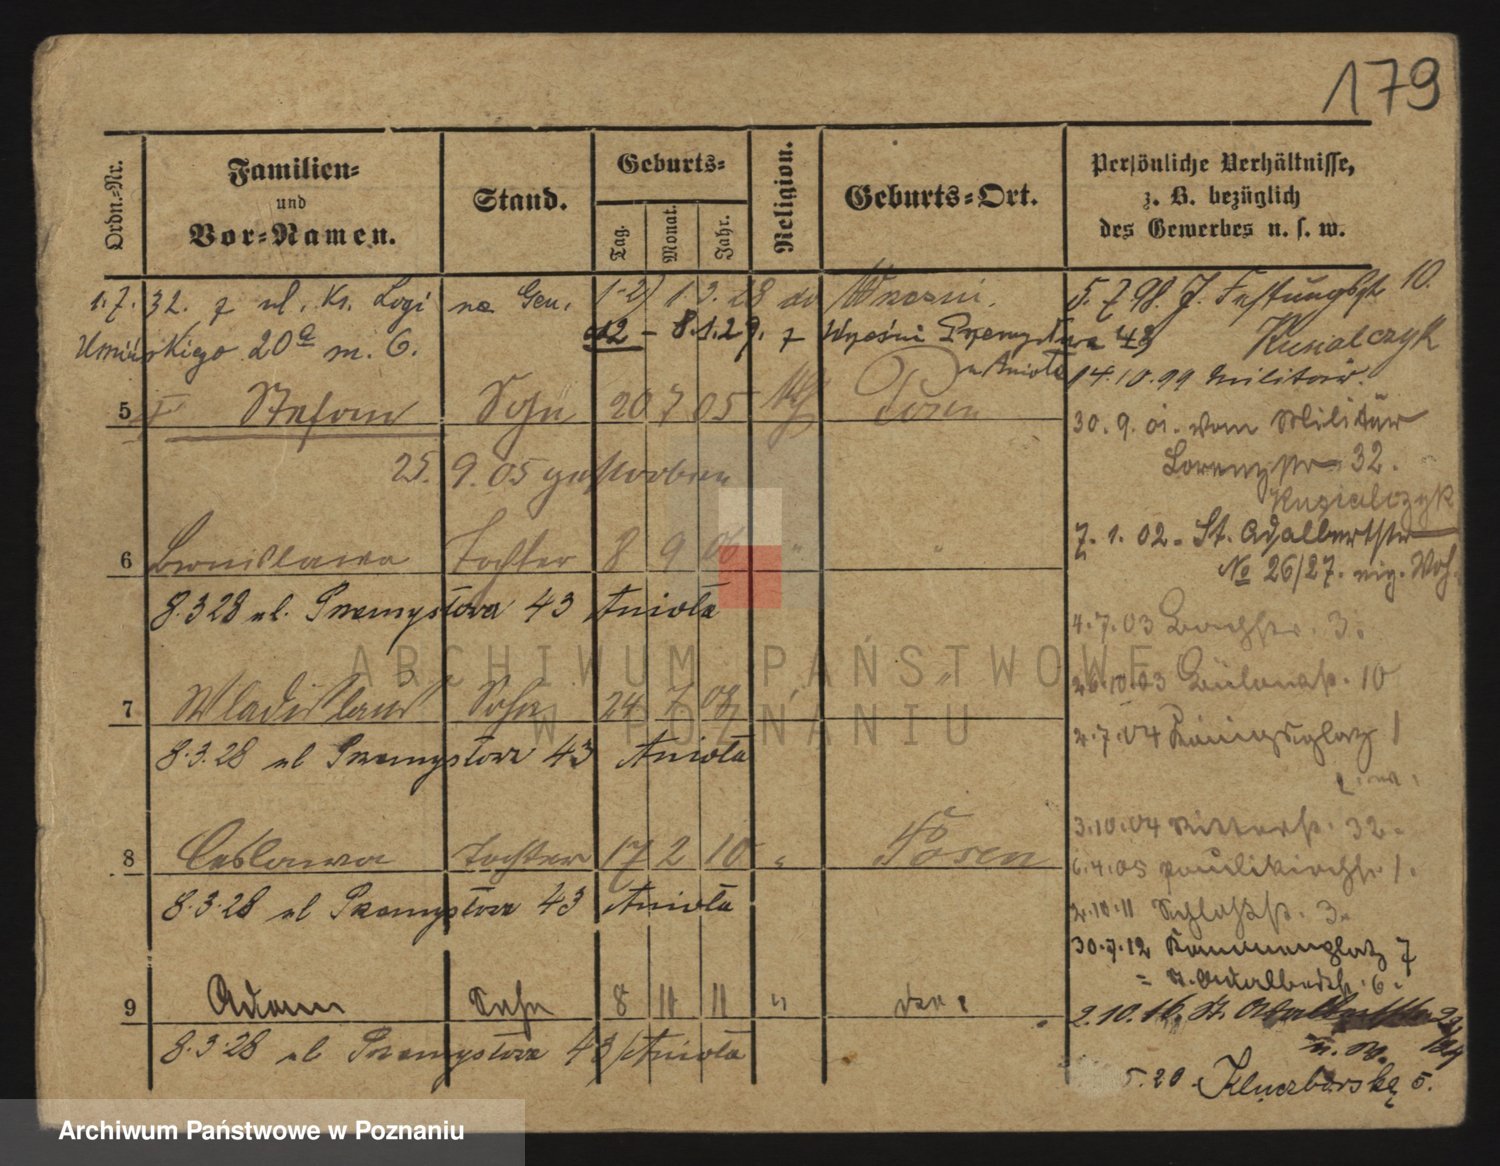 179
Ordn.-Nr.
Familien-
und
Vor-Namen.
Stand.
Geburts-
Tag.
Monat.
Jahr.
Religion.
Geburts-Ort.
Persönliche Verhältnisse,
z. B. bezüglich
des Gewerbes u. s. w.
1.7.32. z ul. Kr. na Gen.
Umińskiego 20a m. 6.
1.3.28 do Wrześni.
12 - 8.1.29. z Wrześni Przemysłowa 43
u Anioła
5 Stefan Sohn 20 7 05 Posen
25. 9. 05 gestorben
6 Bronislawa Tochter 8 9 06 " "
8.3.28 ul. Przemysłowa 43 Anioła
7 Wladislaus Sohn 24 7 08 " "
8.3.28 ul Przemysłowa 43 Anioła
8 Ceslawa Tochter 17 2 10 " Posen
8.3.28 ul Przemysłowa 43 Anioła
9 Adam Sohn 8 11 11 " dto.
8.3.28 ul Przemysłowa 43/Anioła
5.7.98. Festungsstr 10.
14.10.99 Militär.
30.9.01. vom Militär
Lorenzstr 32.
7.1.02. St. Adalbertstr
No 26/27. eig. Woh.
4.7.03 Bachstr. 3.
26.10.03 Bülowstr. 10
2.7.04 Königsplatz 1
3.10.04 Ritterstr. 32.
6.4.05 Paulikirchstr 1.
2.10.11 Schloßstr. 3.
30.7.12 7
= St. Adalbertstr. 6.
2.10.16. St. Adalbertstr
5.20 Kluczborska 5.
ARCHIWUM PAŃSTWOWE
W POZNANIU
Archiwum Państwowe w Poznaniu